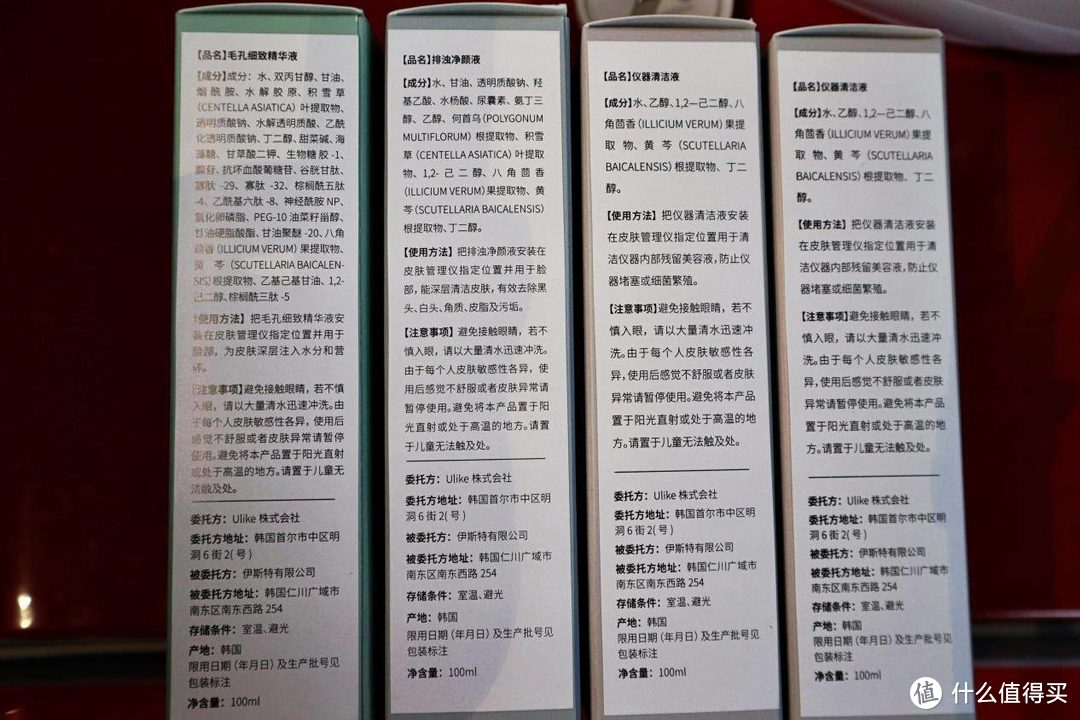 【品名】毛孔细致精华液
【成分】成分：水、双丙甘醇、甘油、
烟酰胺、水解胶原、积雪草
（CENTELLA ASIATICA）叶提取物、
透明质酸钠、水解透明质酸、乙酰
化透明质酸钠、丁二醇、甜菜碱、海
藻糖、甘草酸二钾、生物糖胶-1、
腺苷、抗坏血酸葡糖苷、谷胱甘肽、
寡肽-29、寡肽-32、棕榈酰五肽
-4、乙酰基六肽-8、神经酰胺 NP、
氢化卵磷脂、PEG-10 油菜籽甾醇、
甘油硬脂酸酯、甘油聚醚-20、八角
茴香（ILLICIUM VERUM）果提取物、
黄芩（SCUTELLARIA BAICALEN-
SIS）根提取物、乙基己基甘油、1,2-
己二醇、棕榈酰三肽-5
【使用方法】把毛孔细致精华液安
装在皮肤管理仪指定位置并用于
脸部，为皮肤深层注入水分和营
养。
【注意事项】避免接触眼睛，若不慎
入眼，请以大量清水迅速冲洗。由
于每个人皮肤敏感性各异，使用后
感觉不舒服或者皮肤异常请暂停
使用。避免将本产品置于阳光直射
或处于高温的地方。请置于儿童无
法触及处。
委托方：Ulike 株式会社
委托方地址：韩国首尔市中区明
洞 6 街 2( 号 )
被委托方：伊斯特有限公司
被委托方地址：韩国仁川广域市
南东区南东西路 254
存储条件：室温、避光
产地：韩国
限用日期（年月日）及生产批号见
包装标注
净含量：100ml
【品名】排浊净颜液
【成分】水、甘油、透明质酸钠、羟
基乙酸、水杨酸、尿囊素、氨丁三
醇、乙醇、何首乌（POLYGONUM
MULTIFLORUM）根提取物、积雪
草（CENTELLA ASIATICA）叶提取
物、1,2-己二醇、八角茴香
（ILLICIUM VERUM）果提取物、黄
芩（SCUTELLARIA BAICALENSIS）
根提取物、丁二醇。
【使用方法】把排浊净颜液安装在
皮肤管理仪指定位置并用于脸
部，能深层清洁皮肤，有效去除黑
头、白头、角质、皮脂及污垢。
【注意事项】避免接触眼睛，若不
慎入眼，请以大量清水迅速冲洗。
由于每个人皮肤敏感性各异，使
用后感觉不舒服或者皮肤异常请
暂停使用。避免将本产品置于阳
光直射或处于高温的地方。请置
于儿童无法触及处。
委托方：Ulike 株式会社
委托方地址：韩国首尔市中区明
洞 6 街 2( 号 )
被委托方：伊斯特有限公司
被委托方地址：韩国仁川广域市
南东区南东西路 254
存储条件：室温、避光
产地：韩国
限用日期（年月日）及生产批号见
包装标注
净含量：100ml
【品名】仪器清洁液
【成分】水、乙醇、1,2—己二醇、八
角茴香（ILLICIUM VERUM）果提
取物、黄芩（SCUTELLARIA
BAICALENSIS）根提取物、丁二
醇。
【使用方法】把仪器清洁液安装
在皮肤管理仪指定位置用于清
洁仪器内部残留美容液，防止仪
器堵塞或细菌繁殖。
【注意事项】避免接触眼睛，若不
慎入眼，请以大量清水迅速冲
洗。由于每个人皮肤敏感性各
异，使用后感觉不舒服或者皮肤
异常请暂停使用。避免将本产品
置于阳光直射或处于高温的地
方。请置于儿童无法触及处。
委托方：Ulike 株式会社
委托方地址：韩国首尔市中区明
洞 6 街 2( 号 )
被委托方：伊斯特有限公司
被委托方地址：韩国仁川广域市
南东区南东西路 254
存储条件：室温、避光
产地：韩国
限用日期（年月日）及生产批号见
包装标注
净含量：100ml
【品名】仪器清洁液
【成分】水、乙醇、1,2—己二醇、八
角茴香（ILLICIUM VERUM）果提
取物、黄芩（SCUTELLARIA
BAICALENSIS）根提取物、丁二
醇。
【使用方法】把仪器清洁液安装
在皮肤管理仪指定位置用于清
洁仪器内部残留美容液，防止仪
器堵塞或细菌繁殖。
【注意事项】避免接触眼睛，若不
慎入眼，请以大量清水迅速冲
洗。由于每个人皮肤敏感性各
异，使用后感觉不舒服或者皮肤
异常请暂停使用。避免将本产品
置于阳光直射或处于高温的地
方。请置于儿童无法触及处。
委托方：Ulike 株式会社
委托方地址：韩国首尔市中区明
洞 6 街 2( 号 )
被委托方：伊斯特有限公司
被委托方地址：韩国仁川广域市
南东区南东西路 254
存储条件：室温、避光
产地：韩国
限用日期（年月日）及生产批号见
包装标注
净含量：100ml
值 什么值得买